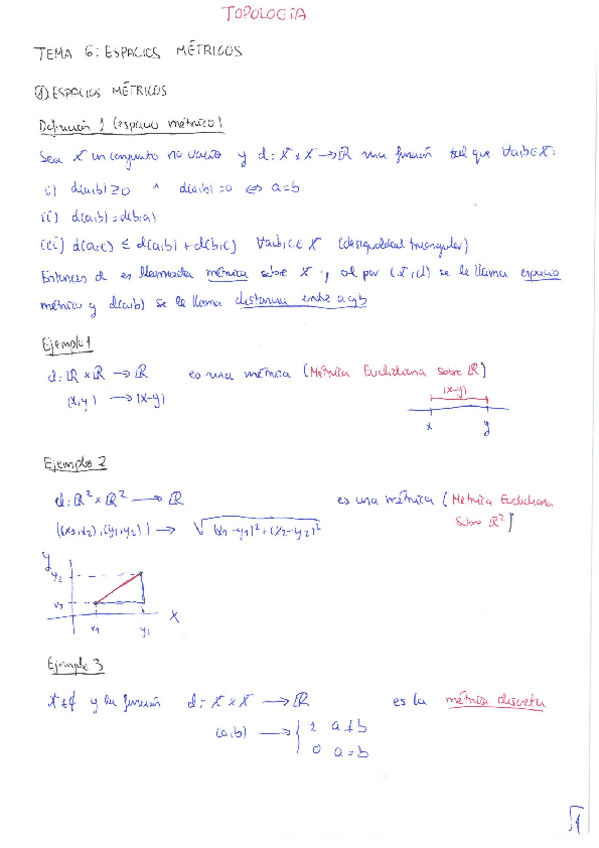 TOPOLOGÍA
TEMA 6: ESPACIOS MÉTRICOS
① ESPACIOS MÉTRICOS
Definición 1 (espacio métrico)
Sea X un conjunto no vacío y d: X x X → ℝ una función tal que ∀a,b ∈ X:
i) d(a,b) ≥ 0 ^ d(a,b) = 0 ⇔ a=b
ii) d(a,b) = d(b,a)
iii) d(a,c) ≤ d(a,b) + d(b,c) ∀a,b,c ∈ X (desigualdad triangular)
Entonces d es llamada métrica sobre X y al par (X,d) se le llama espacio
métrico y d(a,b) se le llama distancia entre a y b
Ejemplo 1
d: ℝ x ℝ → ℝ es una métrica (Métrica Euclidiana sobre ℝ)
(x,y) → |x-y|
|x-y|
x y
Ejemplo 2
d: ℝ² x ℝ² → ℝ es una métrica (Métrica Euclidiana
sobre ℝ²)
((x₁,x₂),(y₁,y₂)) → √(x₁-y₁)²+(x₂-y₂)²
y
y₂
x₁ y₁ X
Ejemplo 3
X ≠ ∅ y la función d: X x X → ℝ es la métrica discreta
(a,b) → { 1 a ≠ b
0 a = b
1